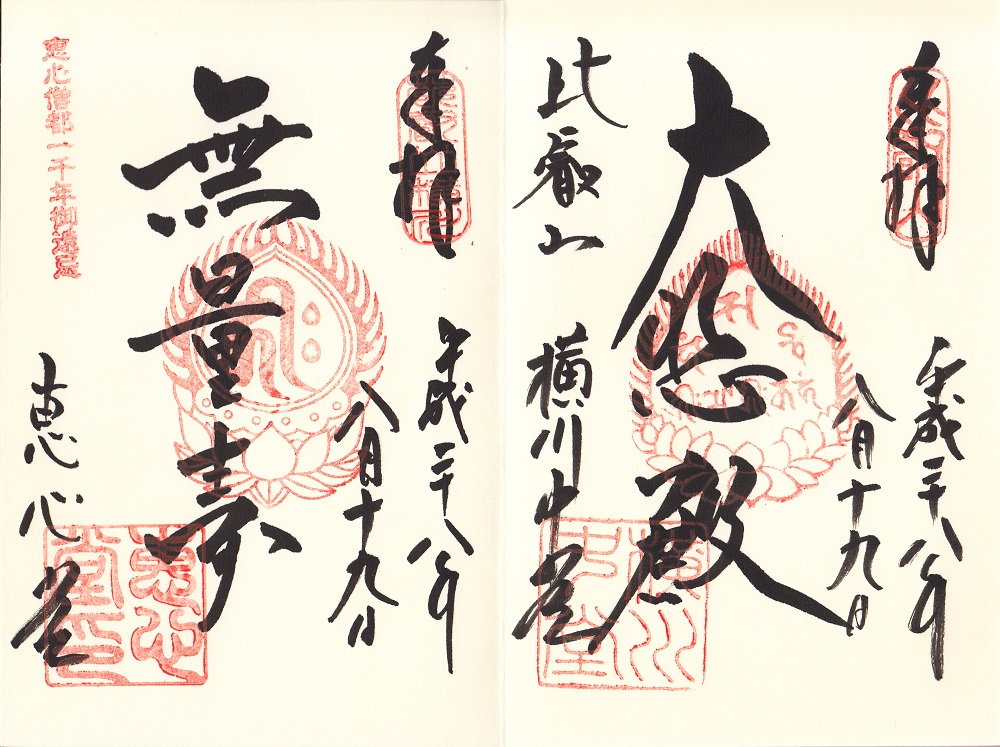 奉拝
平成二十八年
八月十九日
大悲殿
比叡山
横川中堂
横川中堂
奉拝
平成二十八年
八月十九日
無量寿
恵心堂
恵心堂印
恵心僧都一千年御遠忌